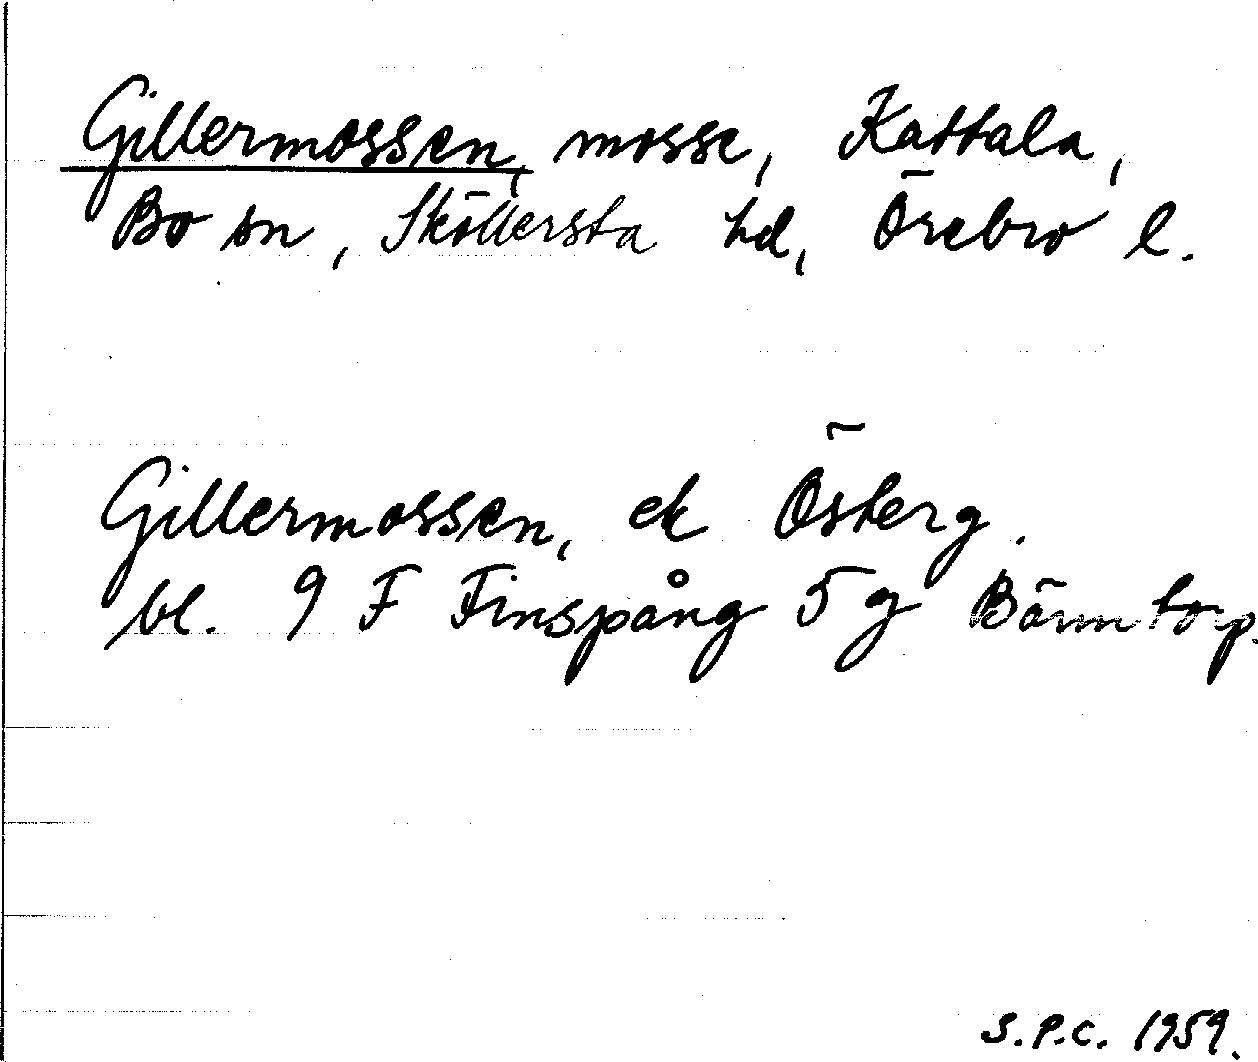 Gillermossen, mosse, Kattala,
Bo sn, Sköllersta hd, Örebro l.
Gillermossen, ek Österg.
bl. 9 F Finspång 5 g Bänntorp.
S.P.C. 1959.